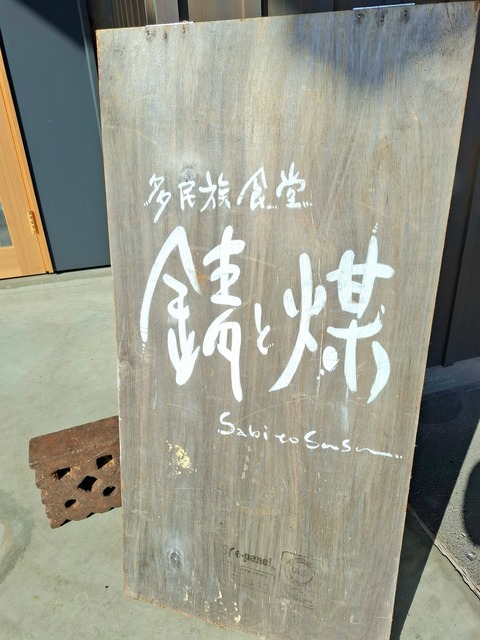 多民族食堂
錆と煤
Sabi to Susu